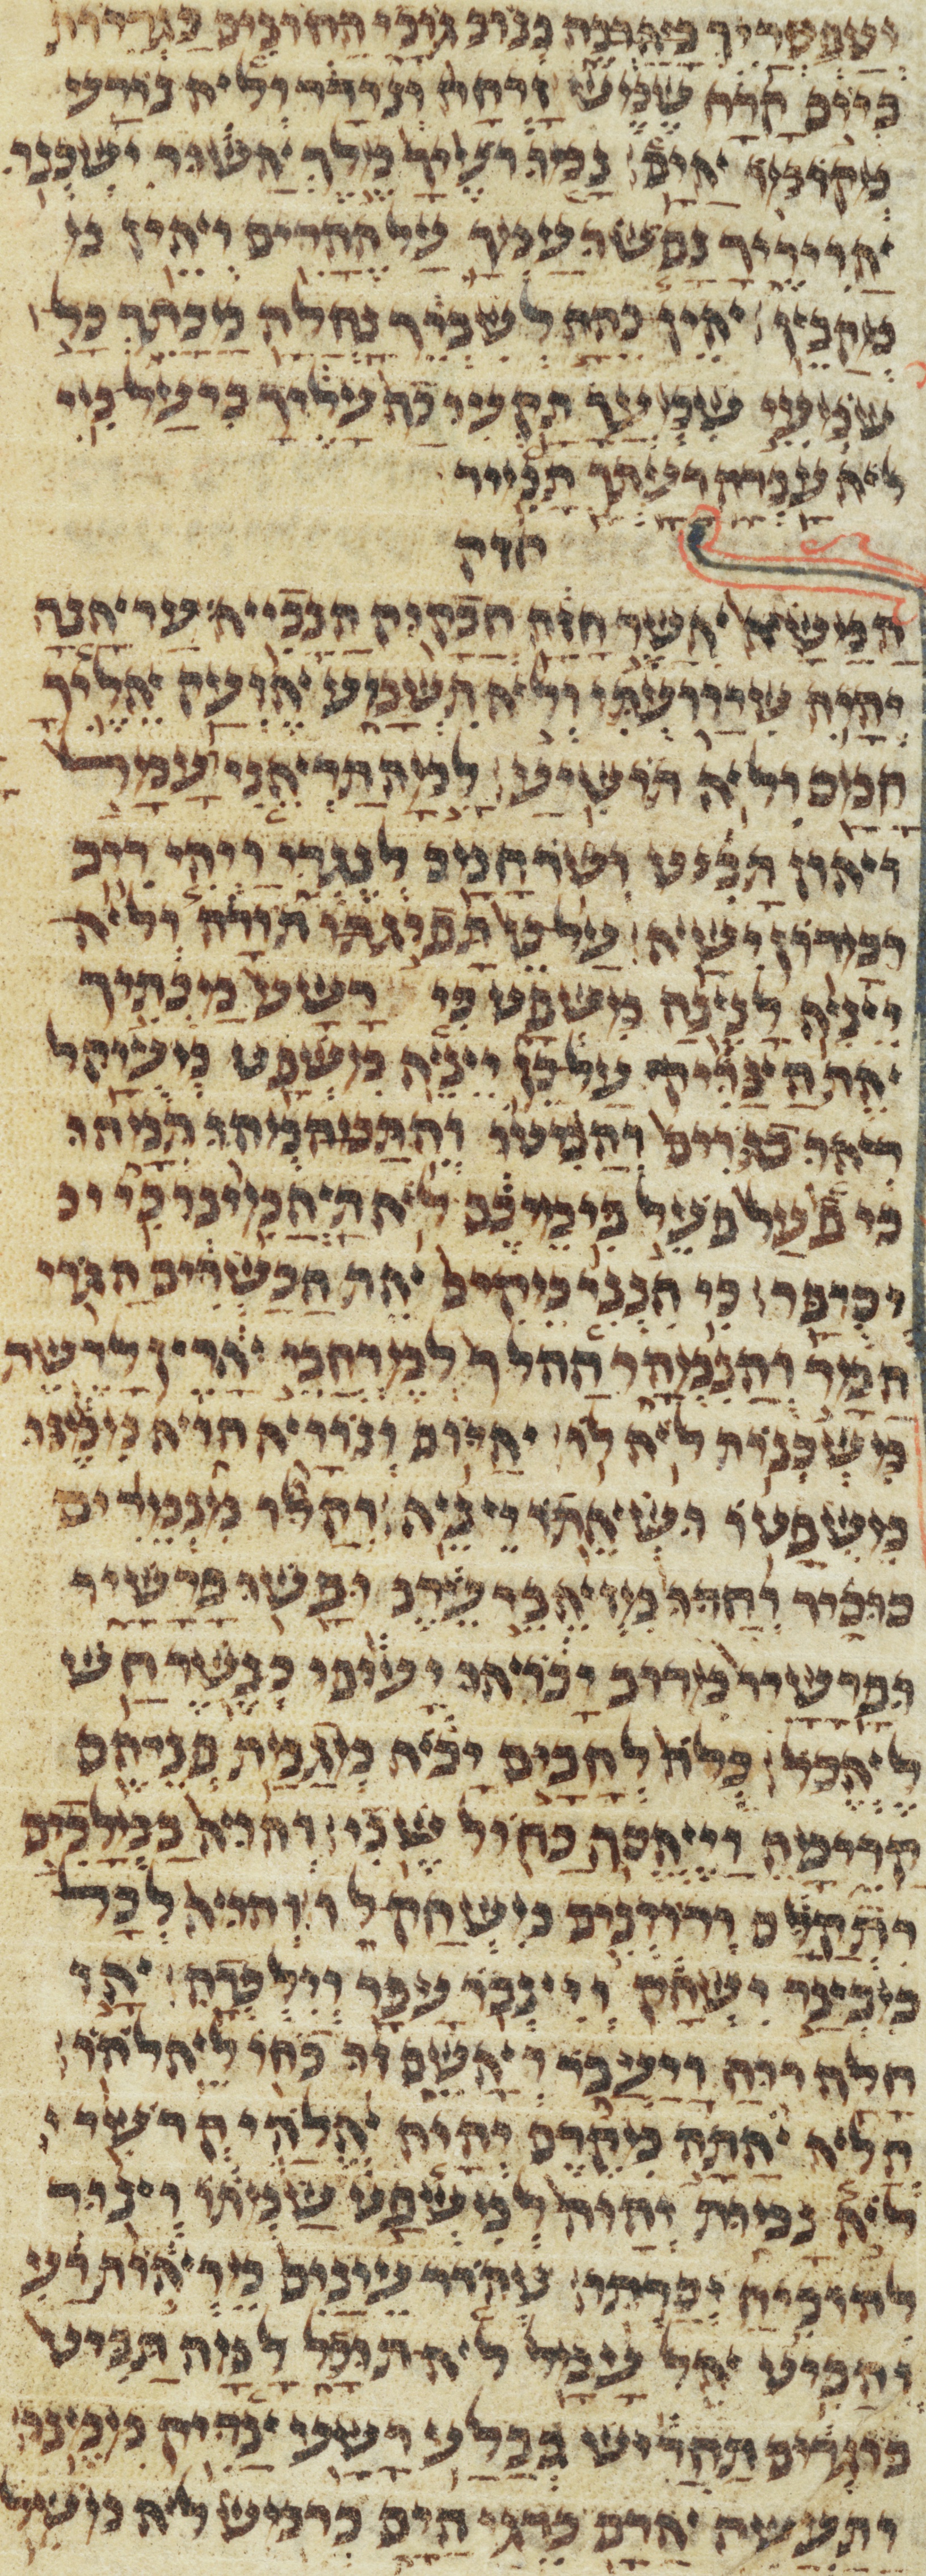 וטפסריך כארבה כגוב גובי החונים בגדרות
ביום קרה שמש זרחה ונודד ולא נודע
מקומו אים נמו רעיך מלך אשור ישכנו
אדיריך נפשו עמך על ההרים ואין
מקבץ אין כהה לשברך נחלה מכתך כל
שמעי שמעך תקעו כף עליך כי על מי
לא עברה רעתך תמיד
חזק
המשא אשר חזה חבקוק הנביא עד אנה
יהוה שועתי ולא תשמע אזעק אליך
חמס ולא תושיע למה תראני עמל
ואון תביט ושד וחמס לנגדי ויהי ריב
ומדון ישא על כן תפוג תורה ולא
יצא לנצח משפט כי רשע מכתיר
את הצדיק על כן יצא משפט מעוקל
ראו בגוים והביטו והתמהו תמהו
כי פעל פעל בימיכם לא תאמינו כי
יסופר כי הנני מקים את הכשדים הגוי
המר והנמהר ההלך למרחבי ארץ לרשת
משכנות לא לו אים ונורא הוא ממנו
משפטו ושאתו יצא וקלו מנמרים
סוסיו וחדו מזאבי ערב ופשו פרשיו
ופרשיו מרחוק יבאו יעופו כנשר חש
לאכל כלה לחמס יבא מגמת פניהם
קדימה ויאסף כחול שבי והוא במלכים
יתקלס ורוזנים משחק לו הוא לכל
מבצר ישחק ויצבר עפר וילכדה אז
חלף רוח ויעבר ואשם זו כחו לאלהו
הלא אתה מקדם יהוה אלהי קדשי
לא נמות יהוה למשפט שמתו וצור
להוכיח יסדתו טהור עינים מראות רע
והביט אל עמל לא תוכל למה תביט
בוגדים תחריש בבלע רשע צדיק ממנו
ותעשה אדם כדגי הים כרמש לא מושל